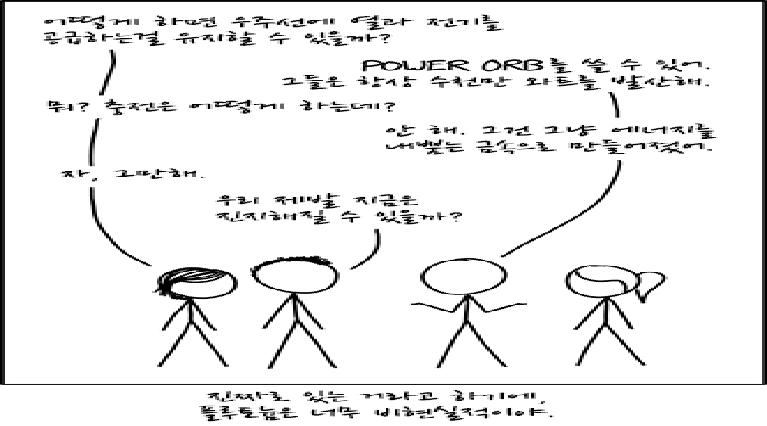 어떻게 하면 우주선에 열과 전기를
공급하는걸 유지할 수 있을까?
POWER ORB를 쓸 수 있어.
그들은 항상 수천만 와트를 발산해.
뭐? 충전은 어떻게 하는데?
안 해. 그건 그냥 에너지를
내뿜는 금속으로 만들어졌어.
자, 고만해.
우리 제발 지금은
진지해질 수 있을까?
진짜로 있는 거라고 하기에,
플루토늄은 너무 비현실적이야.